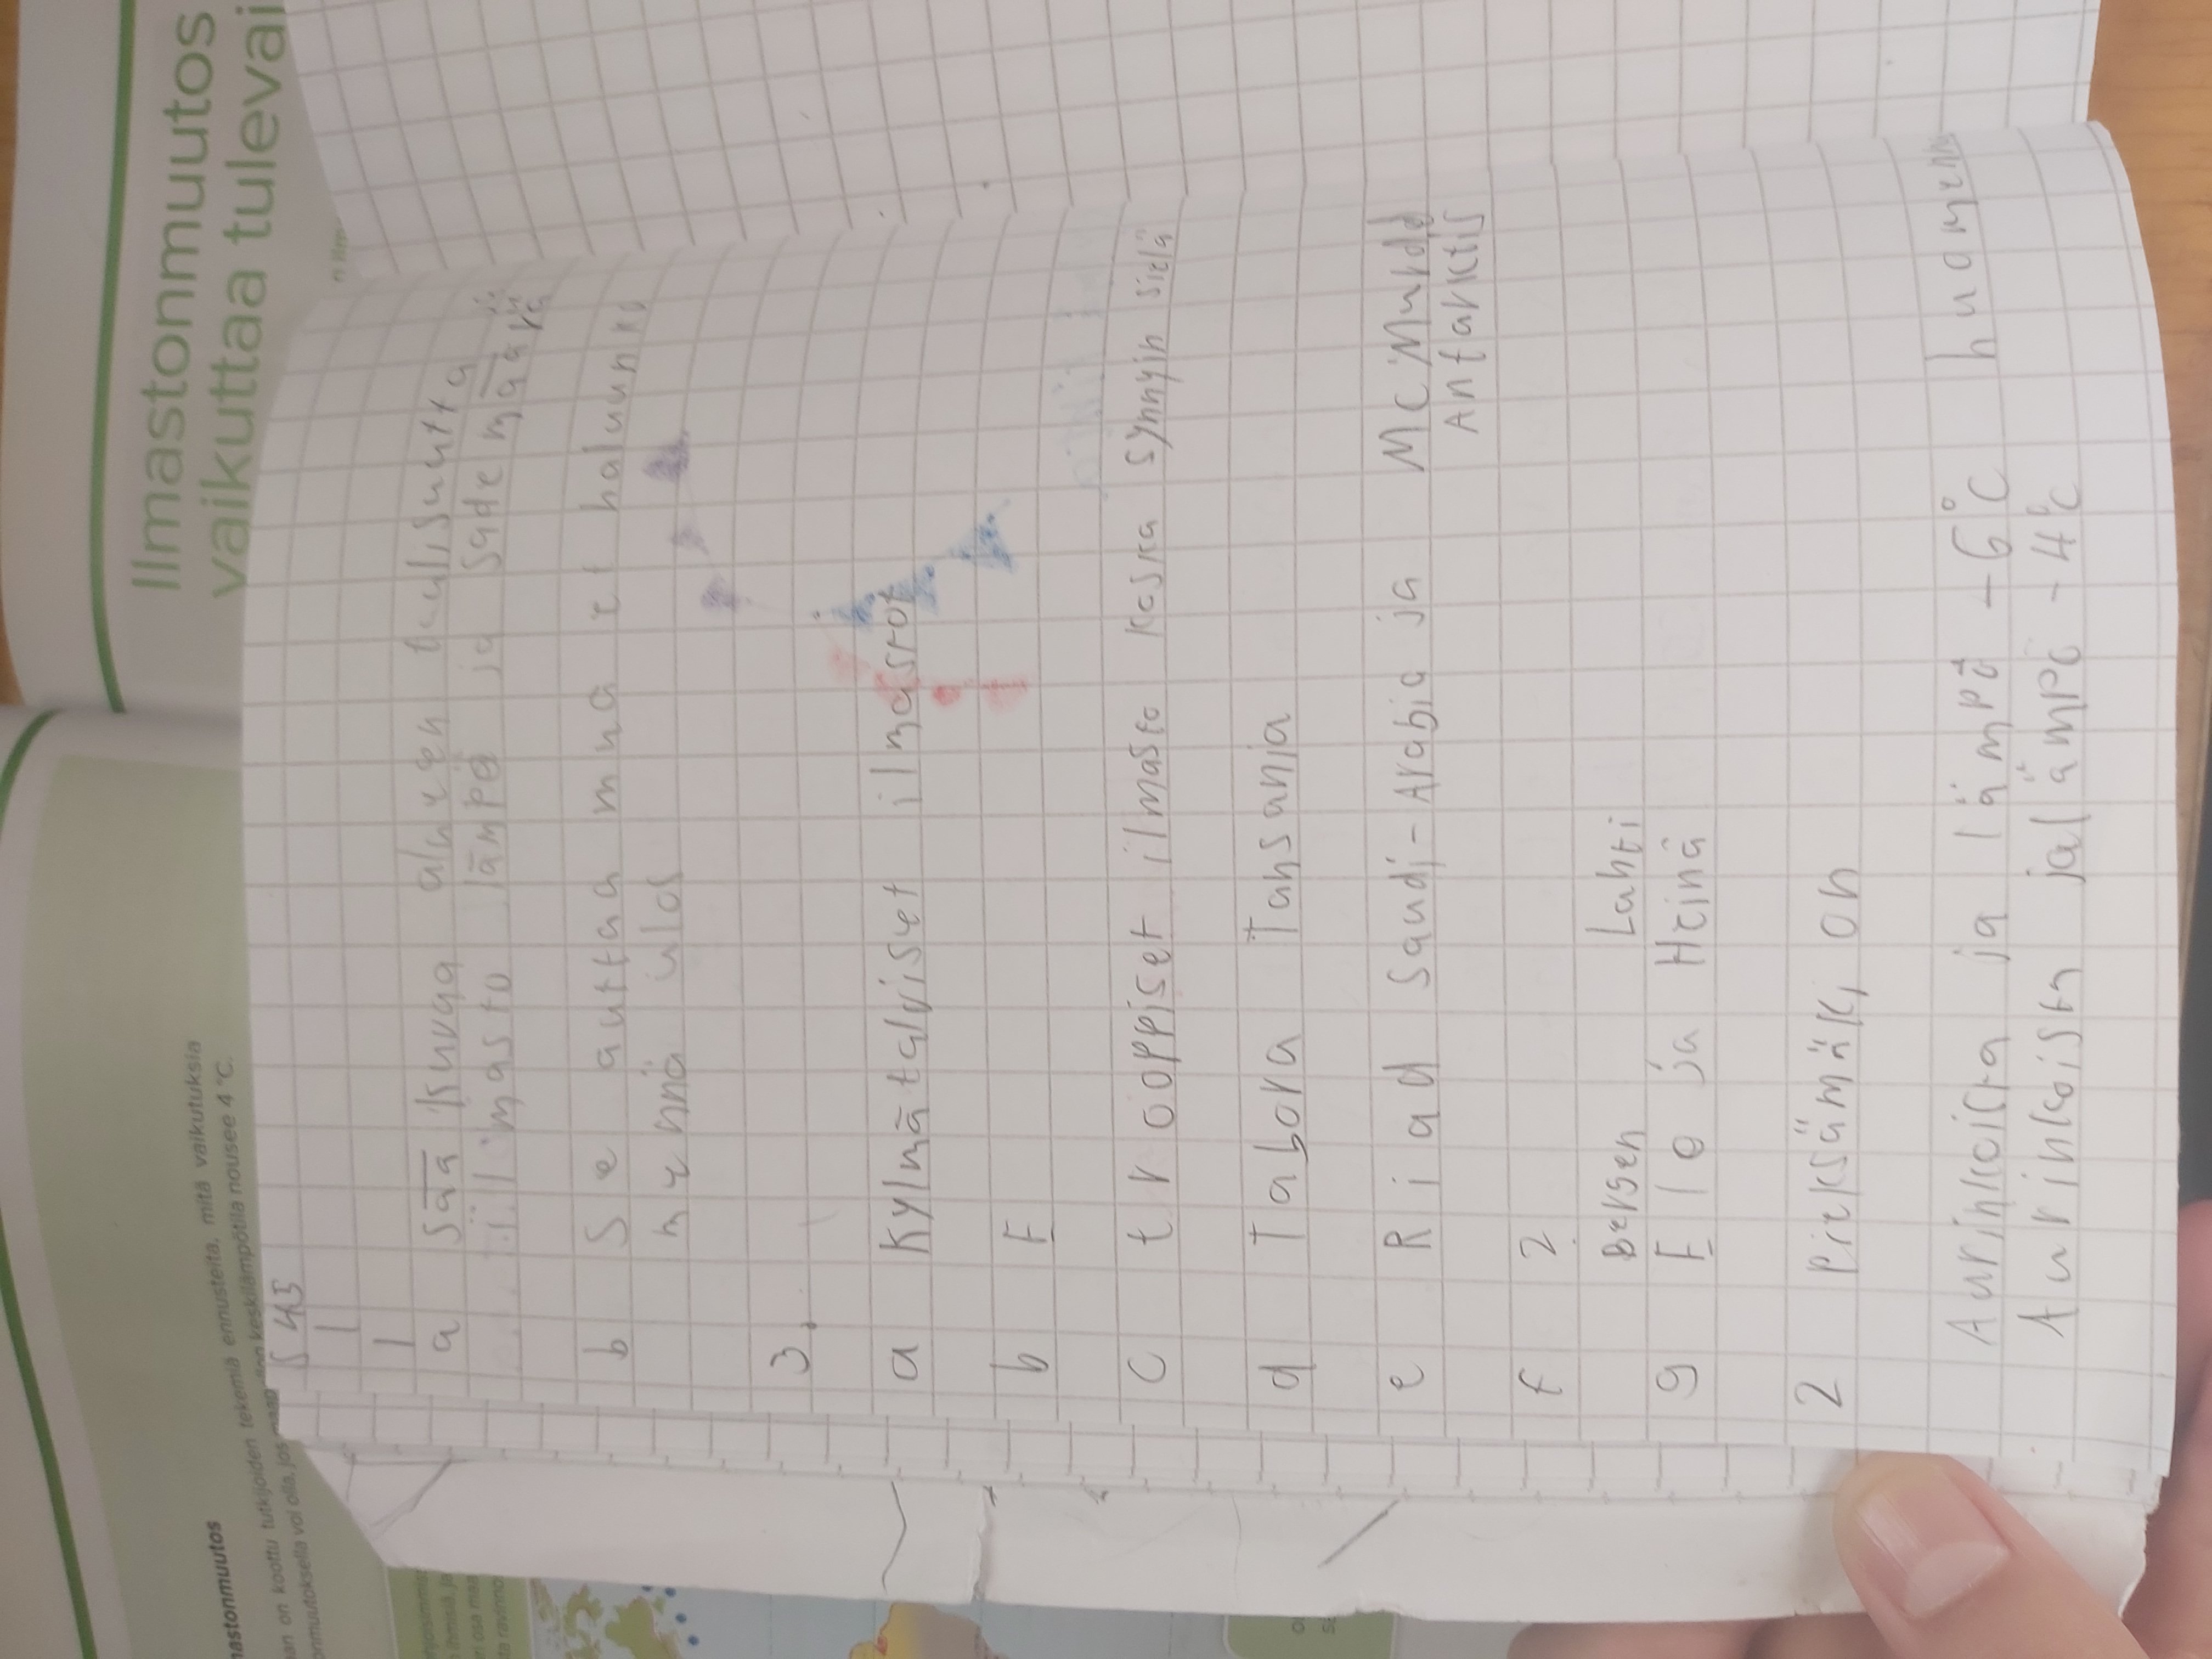 Ilmastonmuutos
vaikuttaa tulevai
nastonmuutos
an on koottu tutkijoiden tekemiä ennusteita, mitä vaikutuksia
onmuutoksella voi olla, jos maap keskilämpötila nousee 4 °C.
S 45
1
1
a sää kuvaa alueen tuulisuutta
ilmasto lämpö ja sademäärä
b Se auttaa mua et haluunko
mennä ulos
3,
a Kylmätalviset ilmastot
b E
c trooppiset ilmasto koska synnyin sielä
d Tabora Tansania
e Riad Saudi-Arabia ja McMurdd
Antarktis
f 2
Bergen Lahti
g Elo ja Heinä
2 Pieksämäki on
Aurinkoista ja lämpö -6°C
Aurinkoista ja lämpö -4°C